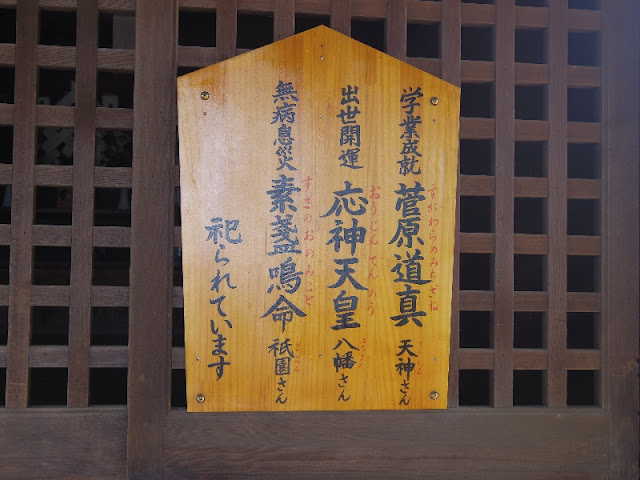 学業成就 菅原道真 天神さん
すがわらのみちざね
出世開運 応神天皇 八幡さん
おうじんてんのう
無病息災 素盞鳴命 祇園さん
すさのおのみこと
祀られています